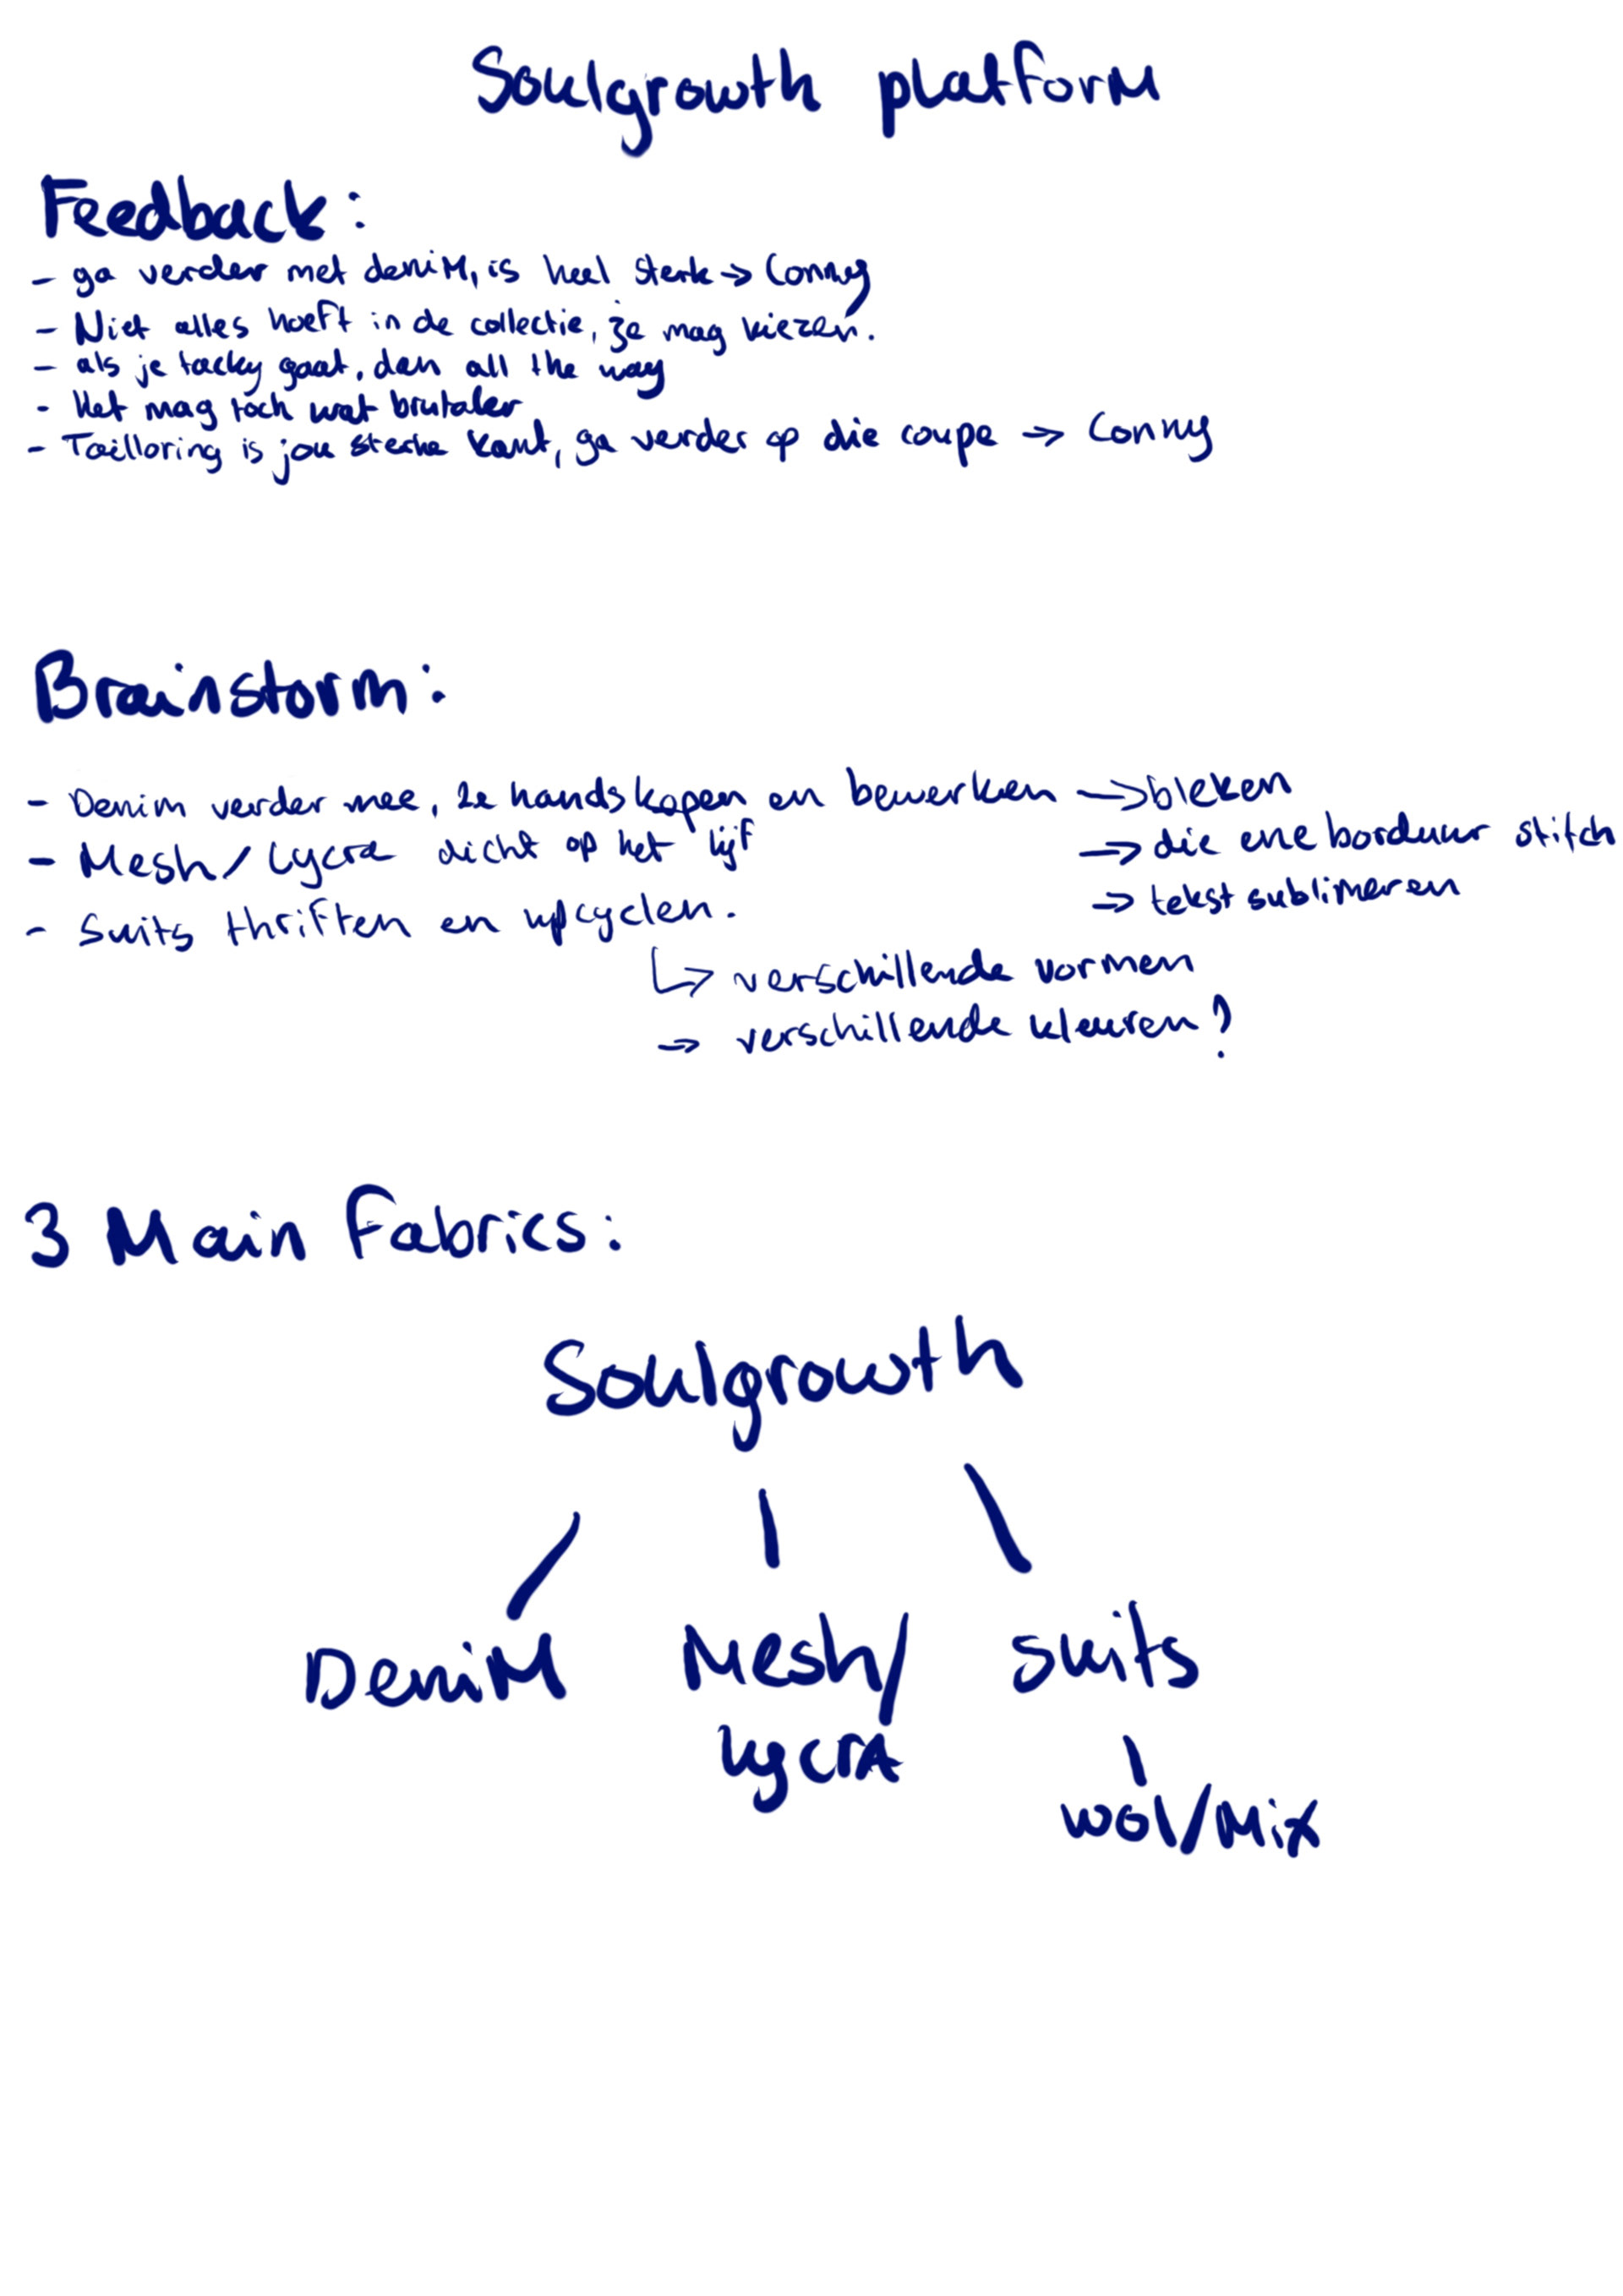 Soulgrowth platform
Feedback:
- ga verder met deniM, is heel sterk → Conny
- Niet alles hoeft in de collectie, je mag kiezen.
- als je tacky gaat, dan all the way
- Het mag toch wat brutaler
- Tailloring is jou sterke kant, ga verder op die coupe → Conny
Brainstorm:
- Denim verder mee, 2e hands kopen en bewerken → bleken
→ die ene borduur stitch
- Mesh/Lycra dicht op het lijf
→ tekst sublimeren
- Suits thriften en upcyclen.
↳ verschillende vormen
→ verschillende kleuren?
3 Main Fabrics:
Soulgrowth
DeniM Mesh/ suits
lycrA
wol/Mix